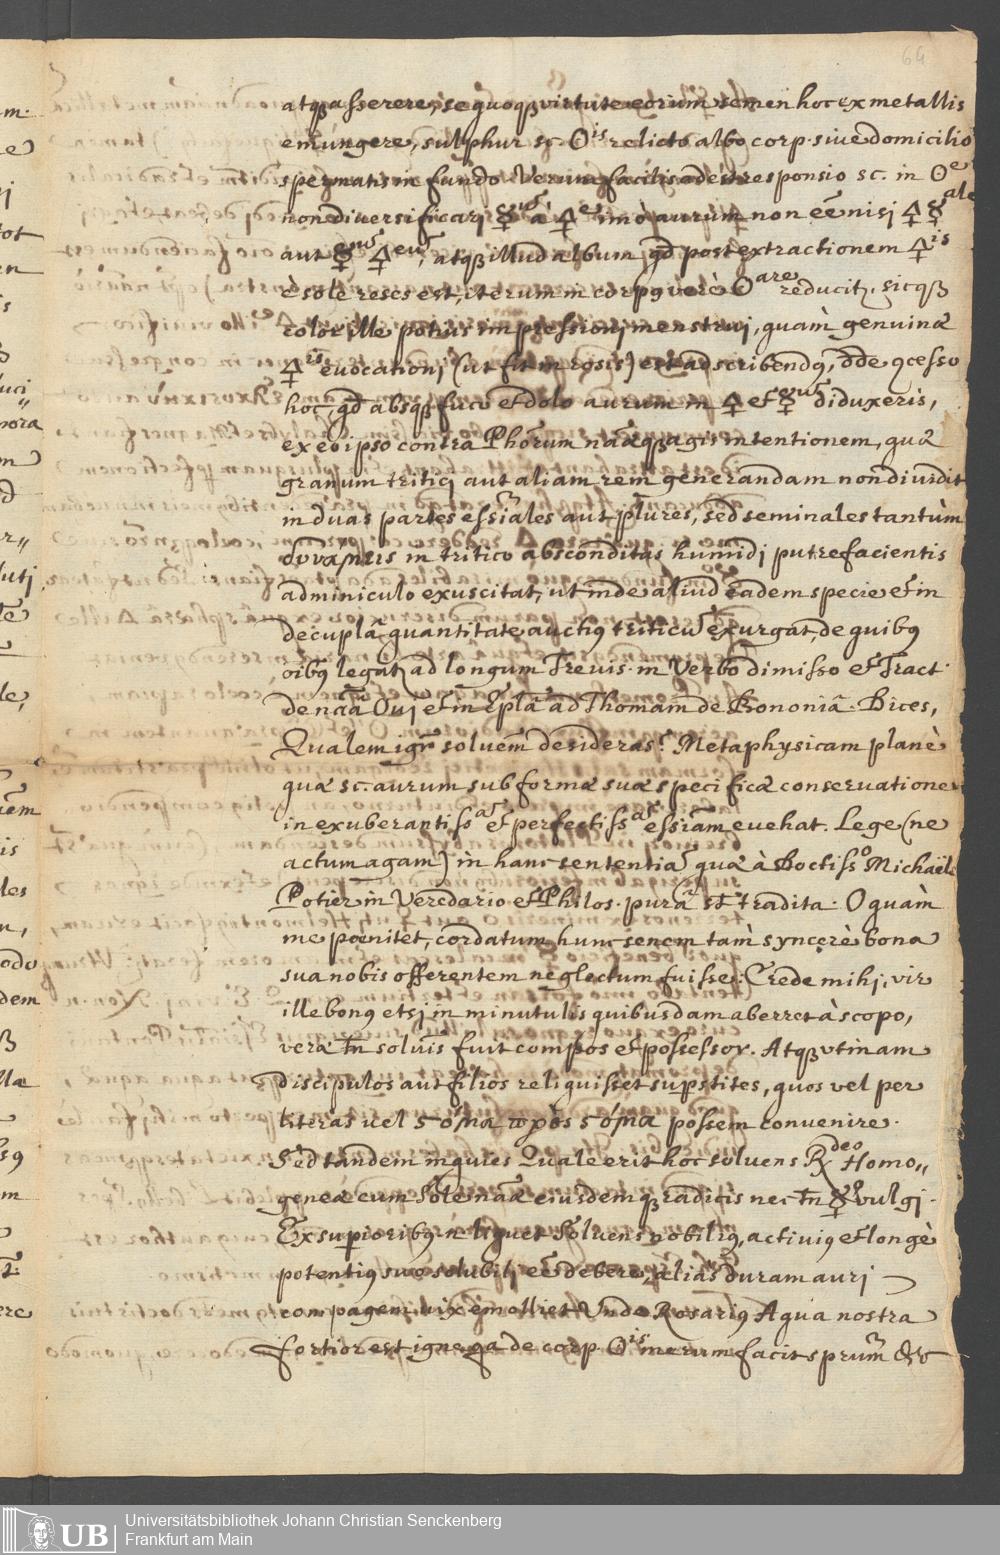 64
atqꝫ asserere, se quoqꝫ virtute eorum semen hoc ex metallis
emungere, sulphur sc. ☉is relicto albo corp. sive domicilio
spermatis in fundo. Verum facilis adest responsio sc. in ☉e
non diversificari ☿um à 🜍e imò aurum non eẽ nisi 🜍ale ☿
aut ☿um 🜍eum, atqꝫ illud album qd post extractionem 🜍is
è sole reses est, iterum in corpꝰ verè ☉are reducitꝫ. sicqꝫ
color ille potius impressionj menstruj, quàm genuinæ
🜍is evocationj (ut fit in rosis) est adscribendꝰ,
hoc, qd absqꝫ fuco et dolo aurum in 🜍 et ☿um diduxeris,
ex eo ipso contra Phorum naãqꝫ agis intentionem, quæ
granum triticj aut aliam rem generandam non dividit
in duas partes essiales aut plures, sed seminales tantùm
δυνάμεις in tritico absconditas humidj putrefacientis
adminiculo exuscitat, ut inde aliud eadem specie et in
decuplâ quantitate auctiꝰ triticũ exurgat, de quibꝰ
oibꝰ legatꝫ ad longum Trevis. in Verbo dimisso et Tract.
de naã Ovj et in Eplâ ad Thomam de Bononiâ. Dices,
Qualem igr solvem desideras? Metaphysicam planè
quæ sc. aurum sub formæ suæ specificæ conservatione
in exuberantissam et perfectissam essiam evehat. Lege (ne
actum agam) in hanc sententiã quæ à Doctisso Michaële
Potier in Veredario et Philos. purâ st tradita. O quàm
me pœnitet, cordatum hunc senem tam syncerè bona
sua nobis offerentem neglectum fuisse. Crede mihj, vir
ille bonꝰ etsj in minutulis quibusdam aberret à scopo,
vera tñ solvis fuit compos et possessor. Atqꝫ vtinam
discipulos aut filios reliquisset supstites, quos vel per
literas vel στόμα πρὸς στόμα possem convenire.
Sed tandem inquies Quale erit hoc solvens ℞deo Homo„
geneæ cum Sole naæ eiusdemqꝫ radicis nec tñ ☿ vulgj.
Ex supioribꝰ liquet Solvens nobiliꝰ, activiꝰ et longè
potentiꝰ suo solubilj eẽ debere, aliàs duram aurj
compagem vix emolliet. Unde Rosariꝰ Aqua nostra
fortior est igne qa de corp. ☉is merum facit sprum &c
Universitätsbibliothek Johann Christian Senckenberg
Frankfurt am Main
UB